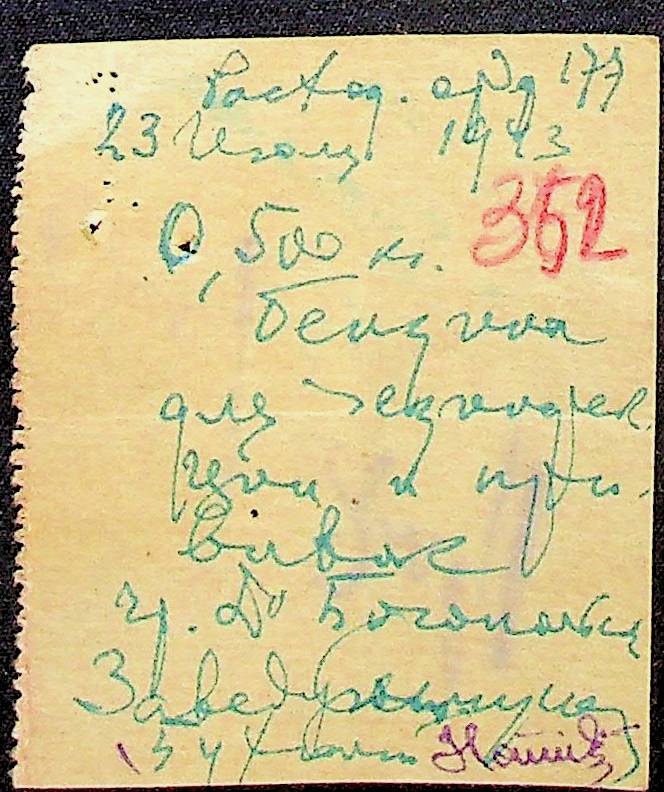 Расход. орд 177
23 Июля 1943
352
0,500 кг.
бензина
для дезинфек
ции и при
вивок
гр. До
Заведующая